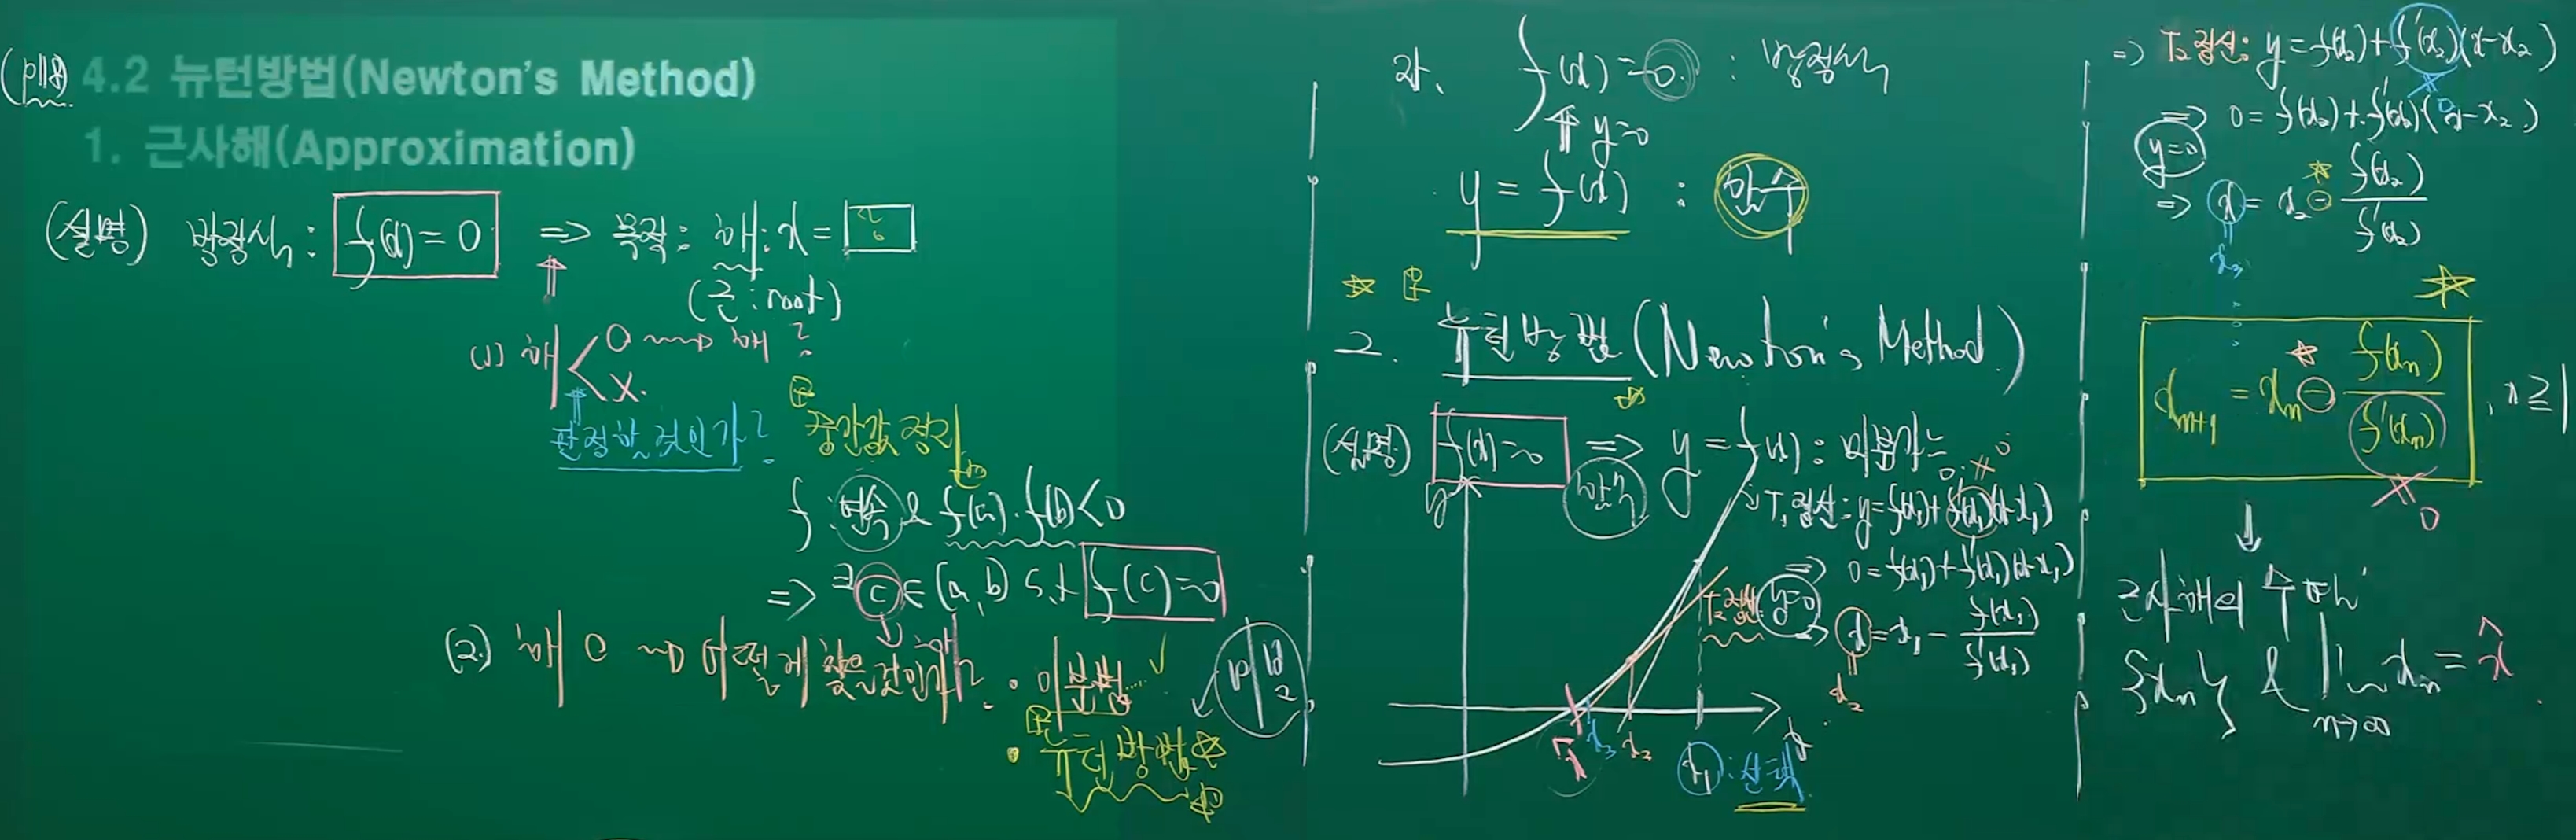 (p118) 4.2 뉴턴방법(Newton's Method)
1. 근사해(Approximation)
(설명) 방정식 : f(x) = 0 ⇒ 목적 : 해 : x =
(근 : root)
(1) 해 < O ⇝ 해 ?
X.
판정할 것인가?
중간값 정리
f : 연속 & f(a)·f(b) < 0
⇒ ∃c ∈ (a, b) s.t f(c) = 0
(2) 해 O ⇝ 어떻게 찾을 것인가?
• 이분법 .... ✓
• 뉴턴방법 ☆
f(x) = 0 : 방정식
⇑ y=0
y = f(x) : 함수
☆
2. 뉴턴방법 (Newton's Method)
(설명) f(x)=0 ⇒ y = f(x) : 미분가능
함수
y
T₁ 접선 : y = f(x₁) + f'(x₁)(x-x₁)
⇒ 0 = f(x₁) + f'(x₁)(x-x₁)
y=0
⇒ x = x₁ - f(x₁)/f'(x₁)
x₂
T₂ 접선
x̂ x₃ x₂ x₁ : 선택
x
⇒ T₂ 접선 : y = f(x₂) + f'(x₂)(x-x₂)
≠ 0
⇒ 0 = f(x₂) + f'(x₂)(x-x₂)
y=0
⇒ x = x₂ - f(x₂)/f'(x₂)
x₃
☆
xₙ₊₁ = xₙ - f(xₙ)/f'(xₙ) , n ≧ 1
≠ 0
⇓
근사해의 수열
{xₙ} & lim xₙ = x̂
n→∞